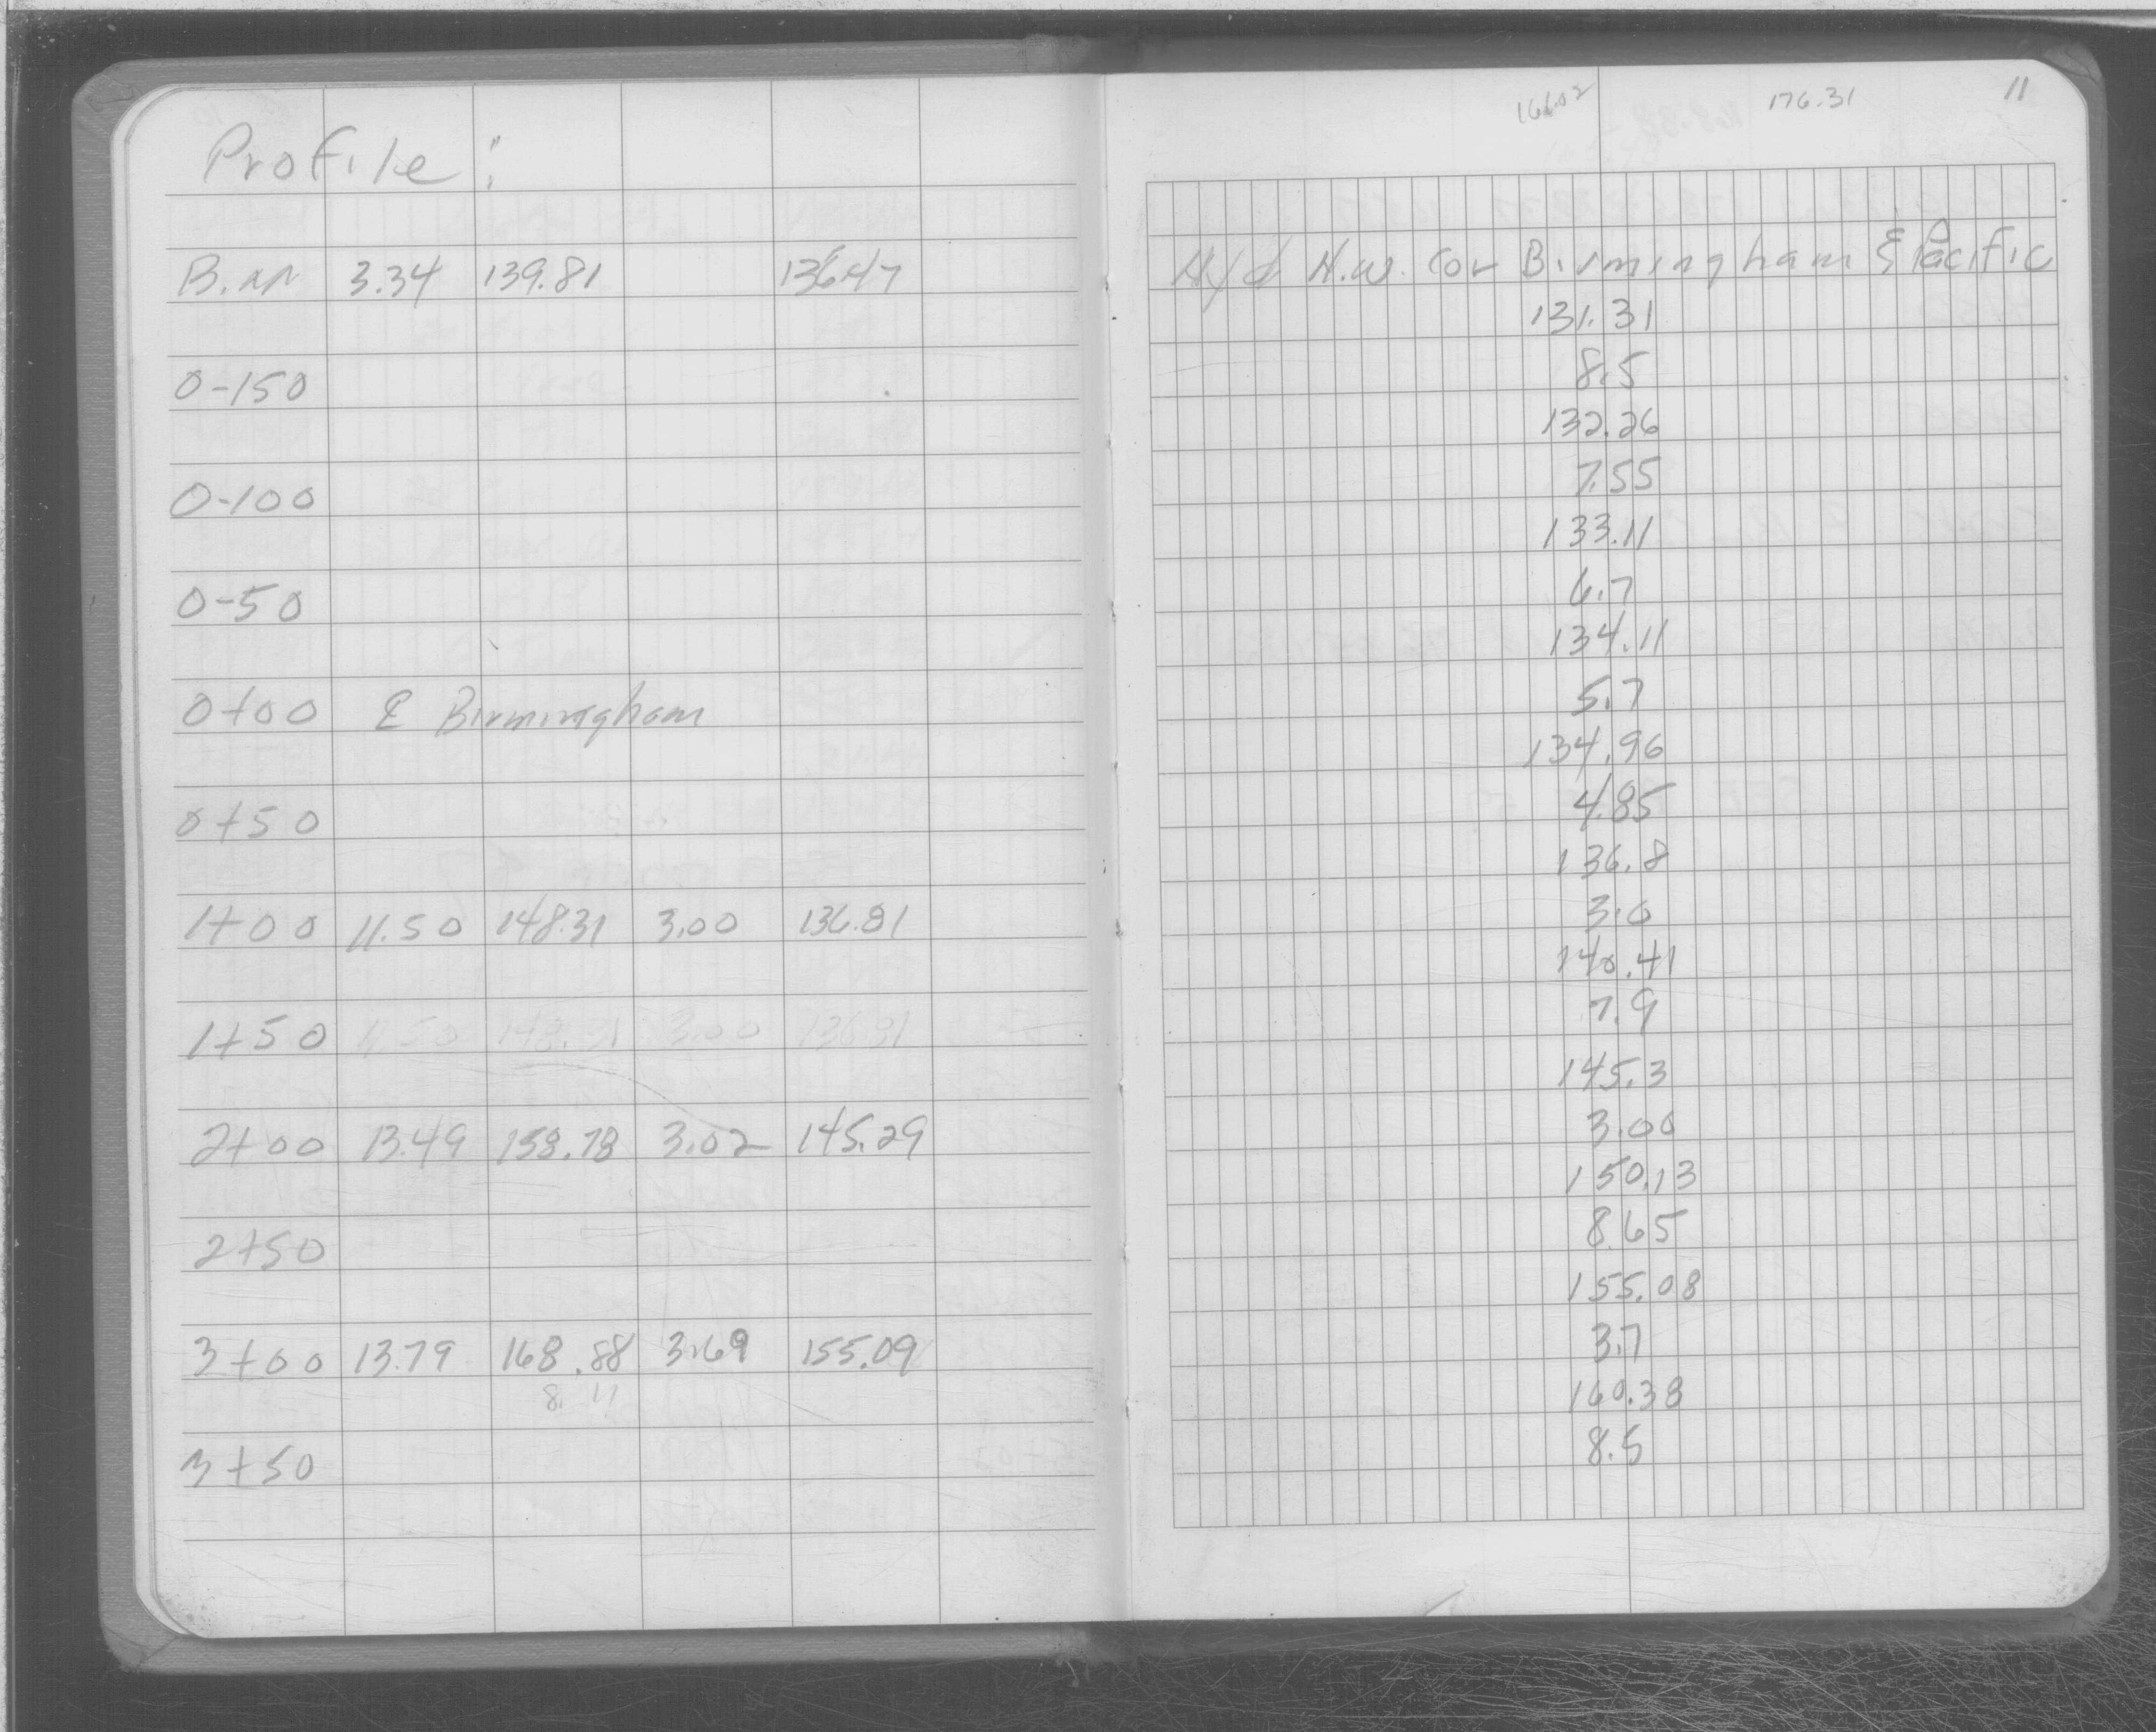 Profile :
B.M 3.34 139.81 136.47
0-150
0-100
0-50
0+00 ℄ Birmingham
0+50
1+00 11.50 148.31 3.00 136.81
1+50 11.50 148.31 3.00 136.81
2+00 13.49 158.78 3.02 145.29
2+50
3+00 13.79 168.88 3.69 155.09
8. 11
3+50
166.02 176.31 11
Hyd N.W. Cor Birmingham & Pacific
131.31
8.5
132.26
7.55
133.11
6.7
134.11
5.7
134.96
4.85
136.8
3.0
140.41
7.9
145.3
3.00
150.13
8.65
155.08
3.7
160.38
8.5